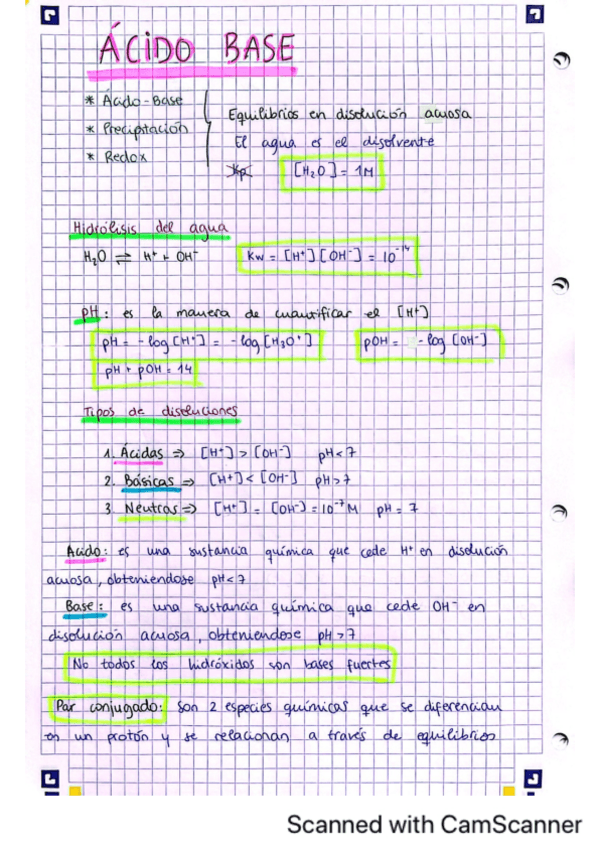 ÁCIDO BASE
* Ácido-Base
* Precipitación
* Redox
Equilibrios en disolución acuosa
El agua es el disolvente
[H₂O] = 1M
Hidrólisis del agua
H₂O ⇌ H⁺ + OH⁻
Kw = [H⁺][OH⁻] = 10⁻¹⁴
pH: es la manera de cuantificar el [H⁺]
pH = -log[H⁺] = -log[H₃O⁺]
pOH = -log[OH⁻]
pH + pOH = 14
Tipos de disoluciones
1. Ácidas ⇒ [H⁺] > [OH⁻] pH < 7
2. Básicas ⇒ [H⁺] < [OH⁻] pH > 7
3. Neutras ⇒ [H⁺] = [OH⁻] = 10⁻⁷ M pH = 7
Acido: es una sustancia química que cede H⁺ en disolución
acuosa, obteniendose pH < 7
Base: es una sustancia química que cede OH⁻ en
disolución acuosa, obteniendose pH > 7
No todos los hidróxidos son bases fuertes
Par conjugado: son 2 especies químicas que se diferencian
en un protón y se relacionan a través de equilibrios
Scanned with CamScanner